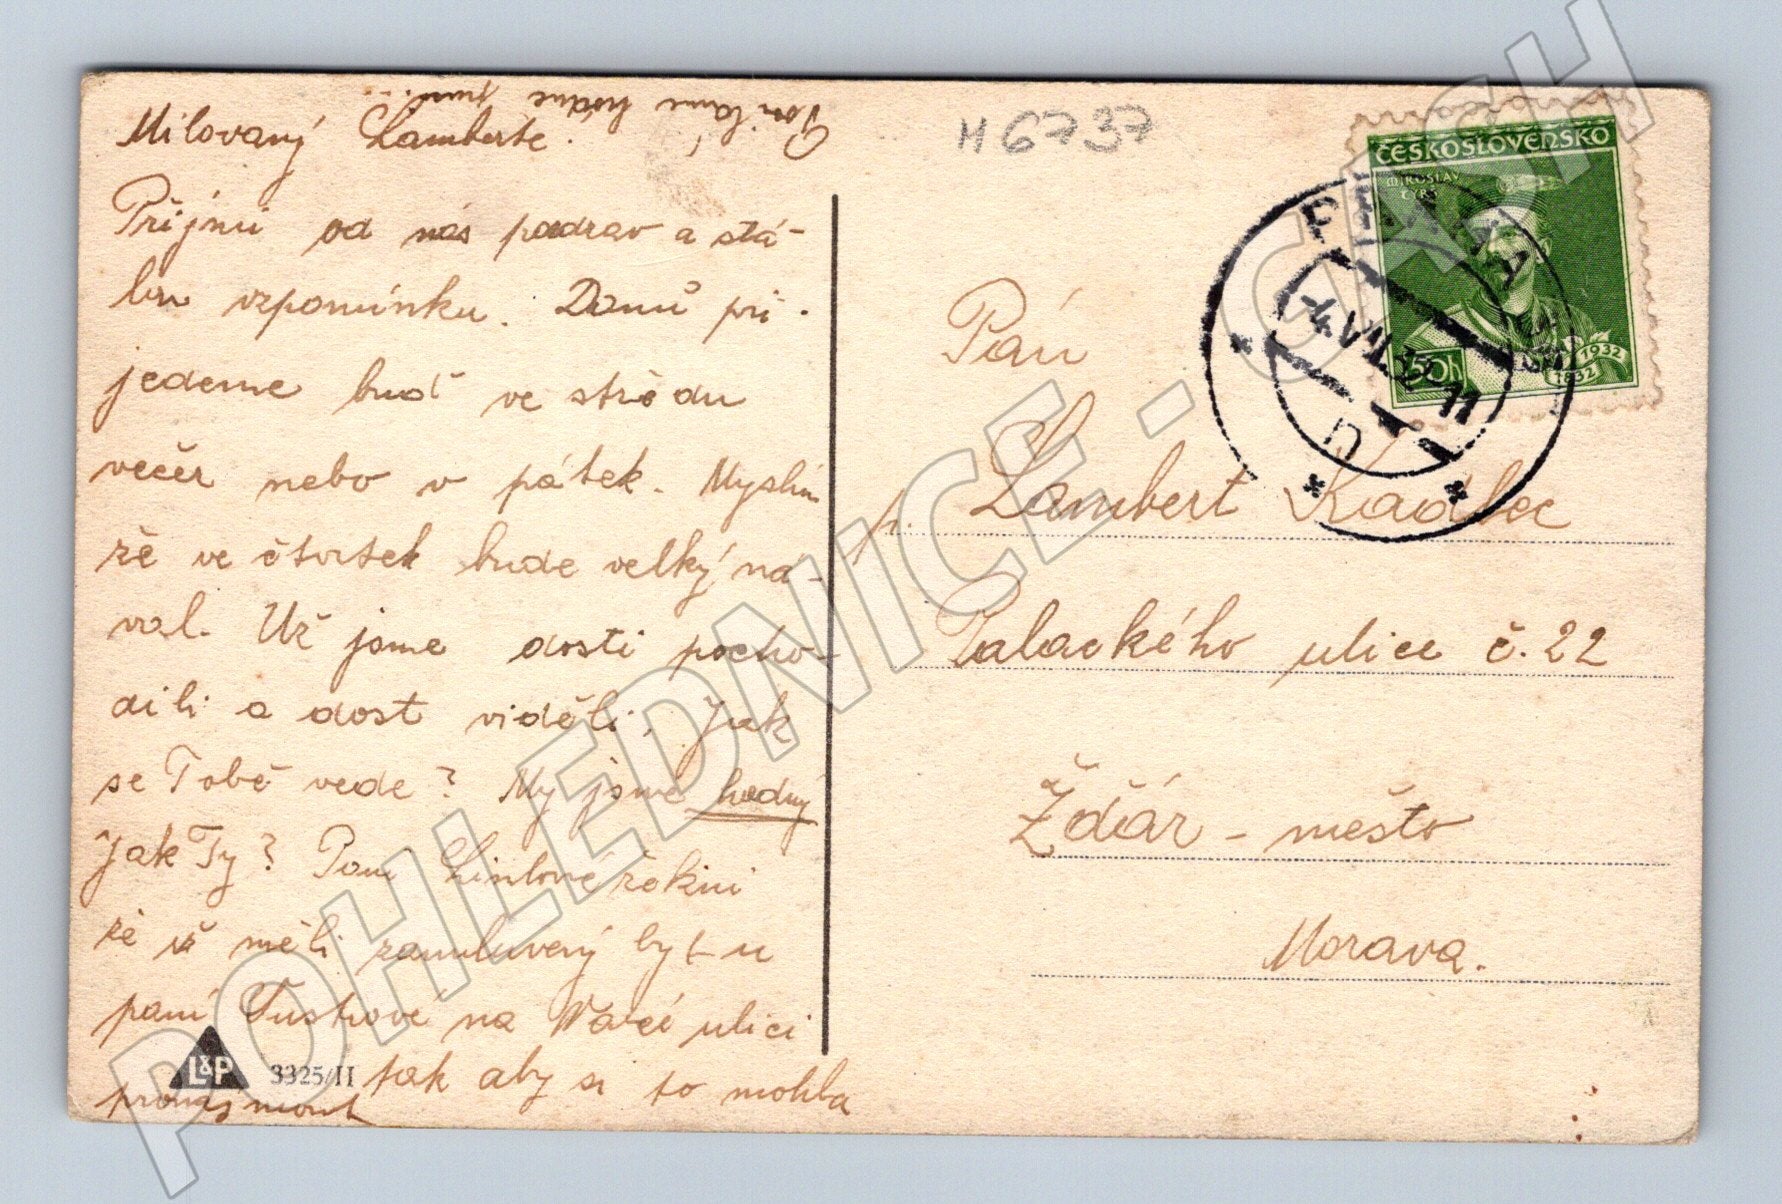 Milovaný Lamberte.
Přijmi od nás pozdrav a stá-
lou vzpomínku. Domů při-
jedeme buď ve středu
večer nebo v pátek. Myslím
že ve čtvrtek bude velký ná-
val. Už jsme dosti pocho-
dili a dost viděli, Jak
se Tobě vede? My jsme hodný
Jak Ty? Paní řekni
že už měli zamluvený byt u
paní na ulici
tak aby si to mohla
L&P
3325/II
M 6737
ČESKOSLOVENSKO
MIROSLAV
TYRŠ
50h
1932
1832
PRAHA
Pán
p. Lambert Kadlec
Palackého ulice č. 22
Žďár - město
Morava.
POHLEDNICE - CASH